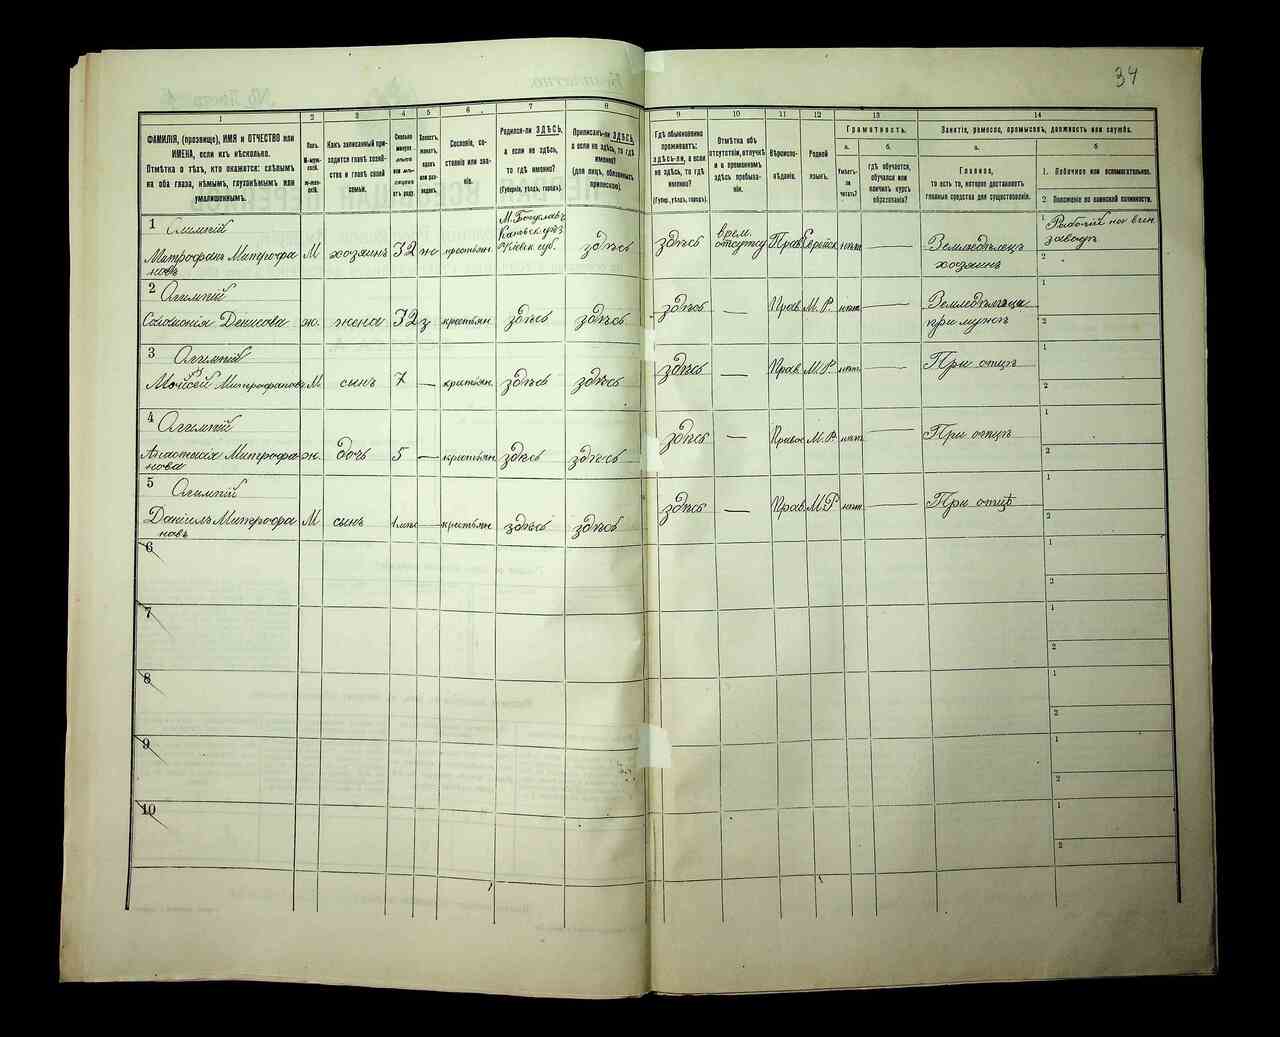 34
1
2
3
4
5
6
7
8
9
10
11
12
13
14
ФАМИЛІЯ, (прозвище), ИМЯ и ОТЧЕСТВО или
ИМЕНА, если ихъ нѣсколько.
Отмѣтка о тѣхъ, кто окажется: слѣпымъ
на оба глаза, нѣмымъ, глухонѣмымъ или
умалишеннымъ.
Полъ.
М-муж-
ской.
Ж-жен-
скій.
Какъ записанный при-
ходится главѣ хозяй-
ства и главѣ своей
семьи.
Сколько
минуло
лѣтъ
или мѣ-
сяцевъ
отъ роду.
Холостъ,
женатъ,
вдовъ
или раз-
веденъ.
Сословіе, со-
стояніе или зва-
ніе.
Родился-ли ЗДѢСЬ,
а если не здѣсь,
то гдѣ именно?
(Губернія, уѣздъ, городъ).
Приписанъ-ли ЗДѢСЬ,
а если не здѣсь, то гдѣ
именно?
(для лицъ, обязанныхъ
припискою).
Гдѣ обыкновенно
проживаетъ:
здѣсь-ли, а если
не здѣсь, то гдѣ
именно?
(Губер., уѣздъ, городъ).
Отмѣтка объ
отсутствіи, отлучкѣ
и о временномъ
здѣсь пребыва-
ніи.
Вѣроиспо-
вѣданіе.
Родной
языкъ.
Грамотность.
а.
б.
Умѣетъ-
ли
читать?
гдѣ обучается,
обучался или
кончилъ курсъ
образованія?
Занятіе, ремесло, промыселъ, должность или служба.
а.
б
Главное,
то есть то, которое доставляетъ
главныя средства для существованія.
1. Побочное или вспомогательное.
2 Положеніе по воинской повинности.
1
Митрофанъ Митрофа
новъ
М
хозяинъ
32
ж
крестьян
М. Богуславъ
Каневск. уѣз
Кіевск губ.
здѣсь
здѣсь
врем.
отсутс
Прав
нѣт
—
Земледѣлецъ
хозяинъ
1
Рабочій на вин
заводѣ
2
2
Олимпій
Соломонія Денисова
ж.
жена
32
з
крестьян
здѣсь
здѣсь
здѣсь
—
Прав.
М. Р.
нѣт
—
при мужѣ
1
2
3
Олимпій
Моисей Митрофановъ
М
сынъ
7
—
крестьян.
здѣсь
здѣсь
здѣсь
—
Прав.
М. Р.
нѣт.
—
При отцѣ
1
2
4
Олимпій
Анастасія Митрофа
нова
ж.
дочь
5
—
крестьян
здѣсь
здѣсь
здѣсь
—
Правос
М. Р.
нѣт
—
При отцѣ
1
2
5
Олимпій
Даніилъ Митрофа
новъ
М
сынъ
1 мѣс
—
крестьян
здѣсь
здѣсь
здѣсь
—
Прав.
М. Р
нѣт
—
При отцѣ
1
2
6
1
2
7
1
2
8
1
2
9
1
2
10
1
2